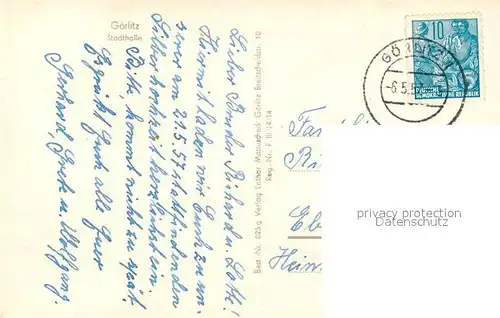 Görlitz
Stadthalle
Lieber Bruder Richard u. Lotte!
Hiermit laden wir Euch zu un-
serer am 21.5.57 stattfindenden
Silberhochzeit herzlichst ein.
Bitte, kommt nicht zu spät
Es grüßt Euch alle Euer
Gerhard, Grete u. Wolfgang.
Best.-Nr. 025 g Verlag Lothar Manuscheck Görlitz, Breitscheidstr. 10
Reg.-Nr. F III 14 14
GÖRLITZ
-6.5.5
10
DEUTSCHE
DEMOKRATISCHE REPUBLIK
Famil
Ri
Eb
Hein
privacy protection
Datenschutz